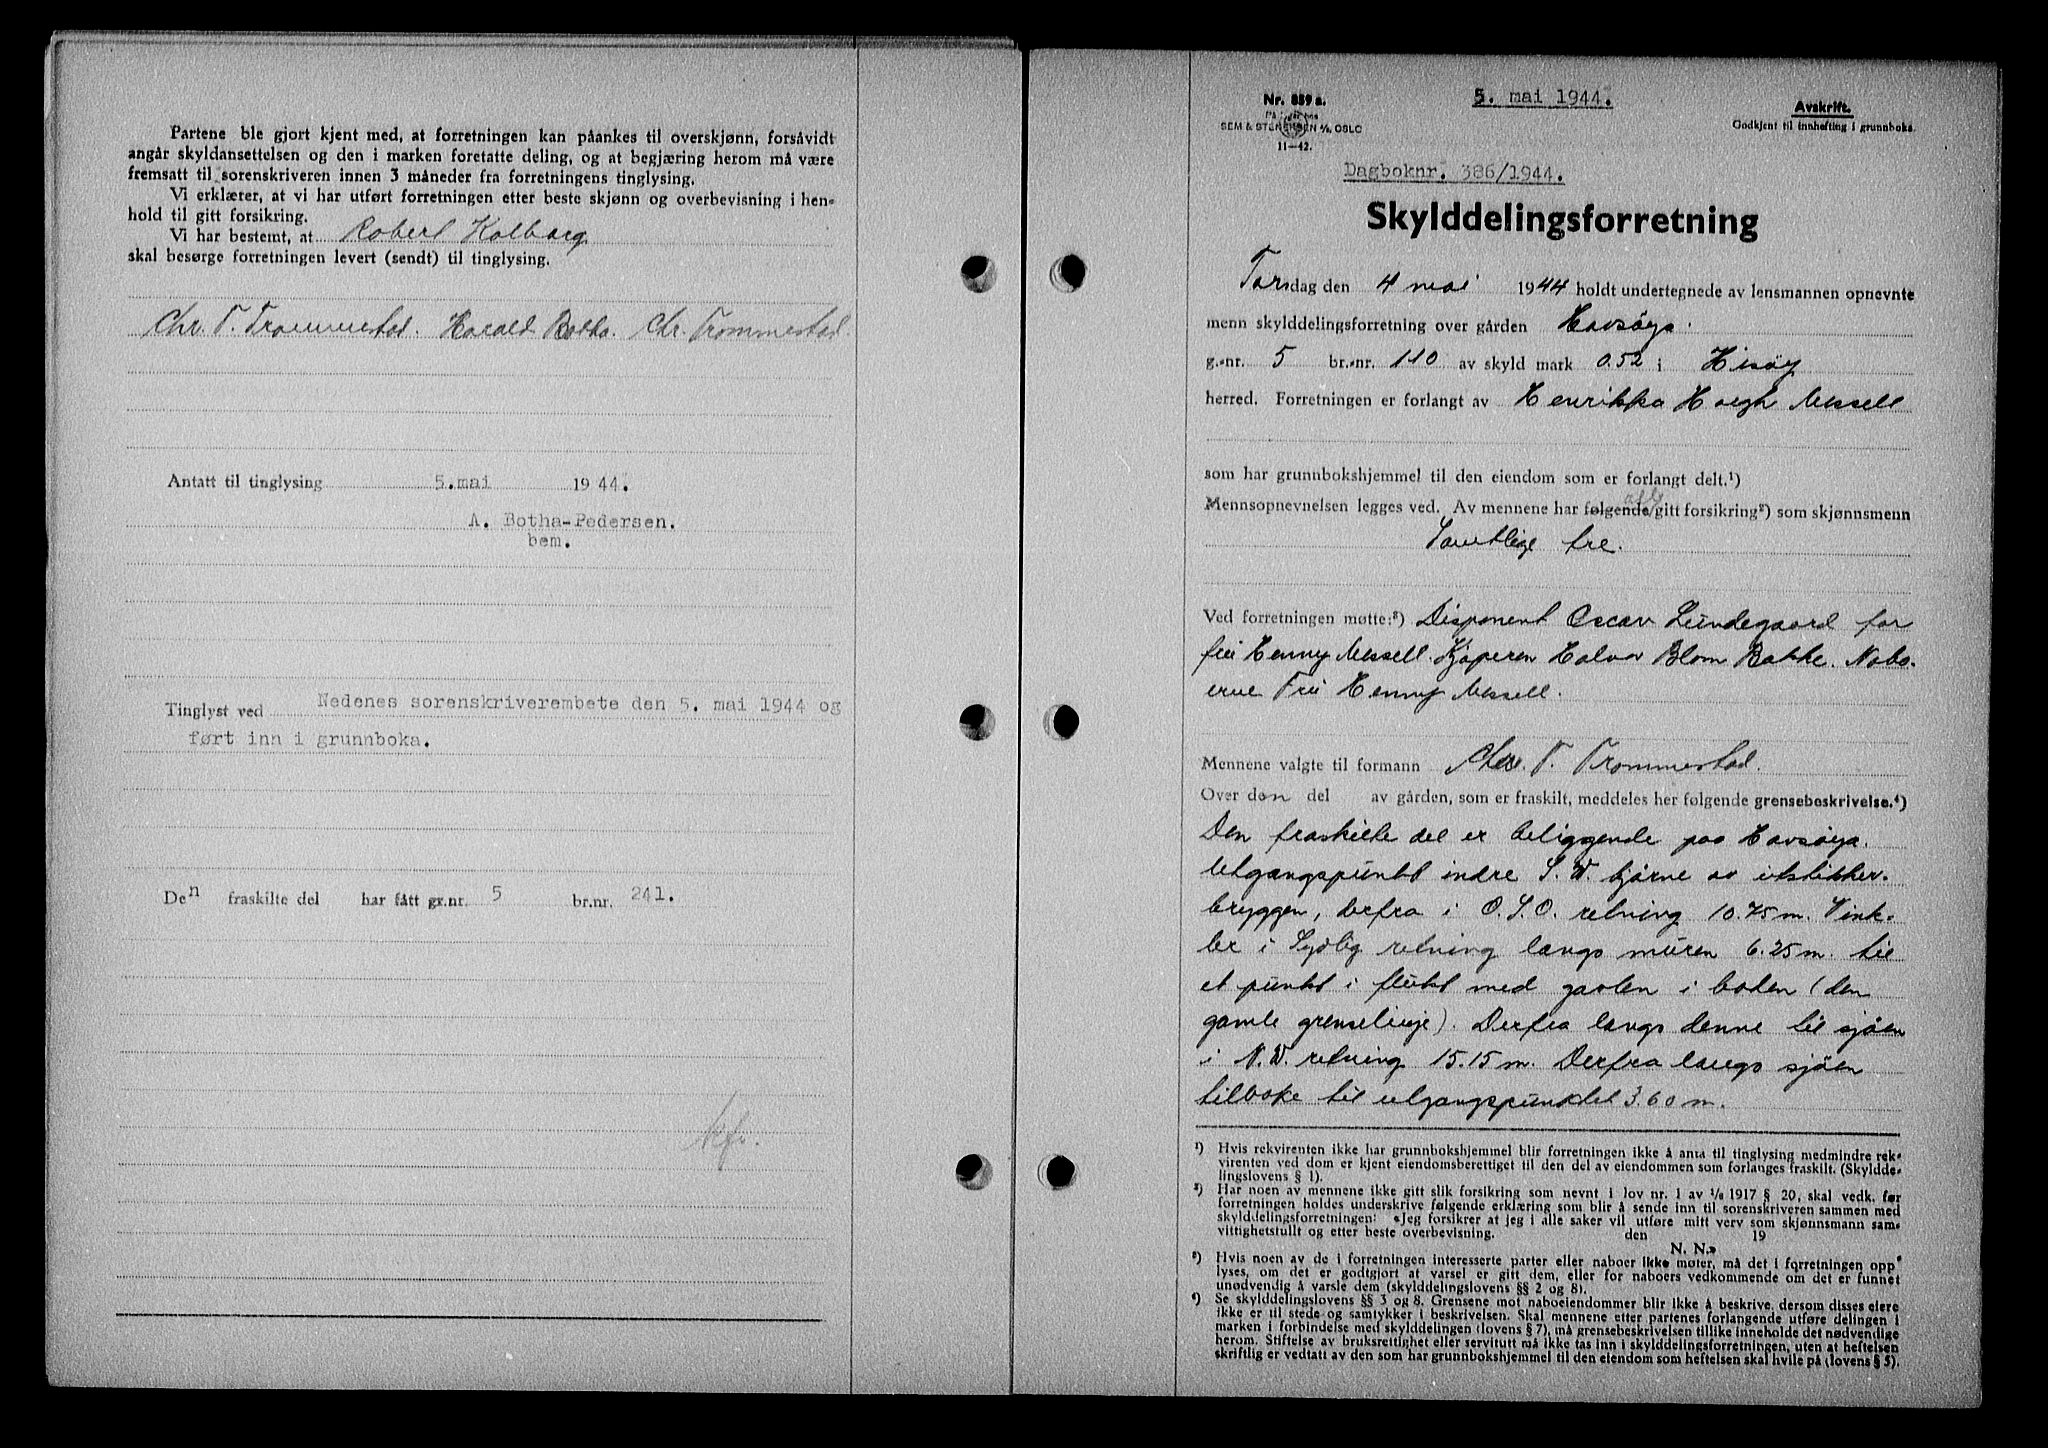 Partene ble gjort kjent med, at forretningen kan påankes til overskjønn, forsåvidt
angår skyldansettelsen og den i marken foretatte deling, og at begjæring herom må være
fremsatt til sorenskriveren innen 3 måneder fra forretningens tinglysing.
Vi erklærer, at vi har utført forretningen etter beste skjønn og overbevisning i hen-
hold til gitt forsikring.
Vi har bestemt, at Robert Kolberg
skal besørge forretningen levert (sendt) til tinglysing.
Chr. T. Trommestad. Harald Botha. Chr. Trommestad.
Antatt til tinglysing 5. mai 1944.
A. Botha-Pedersen.
bem.
Tinglyst ved Nedenes sorenskriverembete den 5. mai 1944 og
ført inn i grunnboka.
Den fraskilte del har fått gr.nr. 5 br.nr. 241.
Nr. 859 a.
SEM & STENERSEN A/S, OSLO
11-42.
5. mai 1944.
Avskrift.
Godkjent til innhefting i grunnboka.
Dagboknr. 386/1944.
Skylddelingsforretning
Torsdag den 4 mai 1944 holdt undertegnede av lensmannen opnevnte
menn skylddelingsforretning over gården Havsöya.
g.-nr. 5 br.-nr. 110 av skyld mark 0.52 i Hisöy
herred. Forretningen er forlangt av Henrikka Høegh Messell
som har grunnbokshjemmel til den eiendom som er forlangt delt.¹)
Mennsopnevnelsen legges ved. Av mennene har følgende gitt forsikring²) som skjønnsmenn
Samtlige tre.
Ved forretningen møtte:³) Disponent Oscar Lundegaard for
fru Henny Messell. Kjöperen Halvor Blom Bakke. Nabo-
erne Fru Henny Messell.
Mennene valgte til formann Chr. T. Trommestad.
Over den del av gården, som er fraskilt, meddeles her følgende grensebeskrivelse.⁴)
Den fraskilte del er beliggende paa Havsöya.
Utgangspunkt indre S.W. hjörne av utstikker-
bryggen, derfra i O.S.O. retning 10.75 m. Vink-
ler i Sydlig retning langs muren 6.25 m. til
et punkt i flukt med gavlen i boden (den
gamle grenselinje). Derfra langs denne til sjöen
i N.W. retning 15.15 m. Derfra langs sjöen
tilbake til utgangspunktet 3.60 m.
¹) Hvis rekvirenten ikke har grunnbokshjemmel blir forretningen ikke å anta til tinglysing medmindre rek-
virenten ved dom er kjent eiendomsberettiget til den del av eiendommen som forlanges fraskilt. (Skyldde-
lingslovens § 1).
²) Har noen av mennene ikke gitt slik forsikring som nevnt i lov nr. 1 av 1/6 1917 § 20, skal vedk. før
forretningen holdes underskrive følgende erklæring som blir å sende inn til sorenskriveren sammen med
skylddelingsforretningen: «Jeg forsikrer at jeg i alle saker vil utføre mitt verv som skjønnsmann sam-
vittighetsfullt og etter beste overbevisning. den 19
N. N.»
³) Hvis noen av de i forretningen interesserte parter eller naboer ikke møter, må det i forretningen opp
lyses, om det er godtgjort at varsel er gitt dem, eller for naboers vedkommende om det er funnet
unødvendig å varsle dem (skylddelingslovens §§ 2 og 8).
⁴) Se skylddelingslovens §§ 3 og 8. Grensene mot naboeiendommer blir ikke å beskrive, dersom disses eiere
ikke er til stede og samtykker i beskrivelsen. Skal mennene etter partenes forlangende utføre delingen i
marken i forbindelse med skylddelingen (lovens § 7), må grensebeskrivelsen tillike inneholde det nødvendige
herom. Stiftelse av bruksrettighet eller servitutt må ikke tas inn i skylddelingsforretningen, uten at heftelsen
skriftlig er vedtatt av den som har grunnbokshjemmel til den eiendom som heftelsen skal hvile på (lovens § 5).